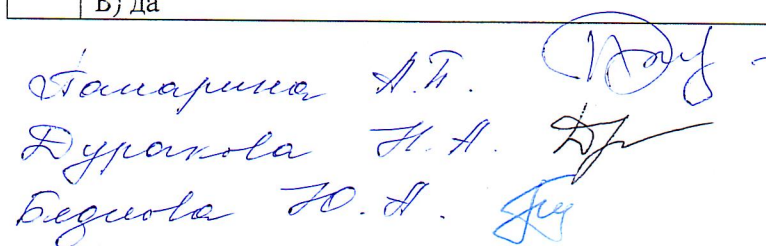 В) да
Панарина А.П.
Дуракова Н.А.
Беднова Ю.А.